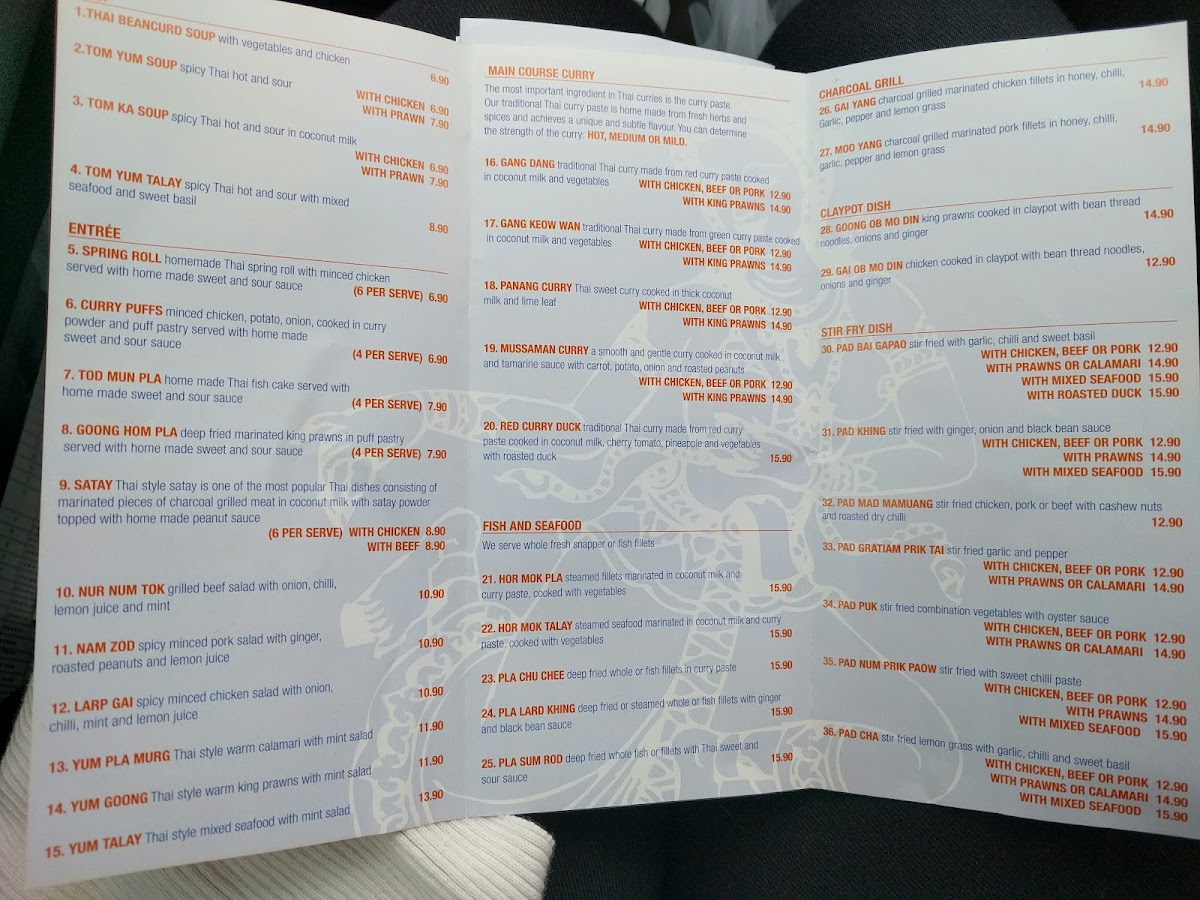 1.THAI BEANCURD SOUP with vegetables and chicken
6.90
2.TOM YUM SOUP spicy Thai hot and sour
WITH CHICKEN 6.90
WITH PRAWN 7.90
3. TOM KA SOUP spicy Thai hot and sour in coconut milk
WITH CHICKEN 6.90
WITH PRAWN 7.90
4. TOM YUM TALAY spicy Thai hot and sour with mixed
seafood and sweet basil
8.90
ENTRÉE
5. SPRING ROLL homemade Thai spring roll with minced chicken
served with home made sweet and sour sauce (6 PER SERVE) 6.90
6. CURRY PUFFS minced chicken, potato, onion, cooked in curry
powder and puff pastry served with home made
sweet and sour sauce (4 PER SERVE) 6.90
7. TOD MUN PLA home made Thai fish cake served with
home made sweet and sour sauce (4 PER SERVE) 7.90
8. GOONG HOM PLA deep fried marinated king prawns in puff pastry
served with home made sweet and sour sauce (4 PER SERVE) 7.90
9. SATAY Thai style satay is one of the most popular Thai dishes consisting of
marinated pieces of charcoal grilled meat in coconut milk with satay powder
topped with home made peanut sauce
(6 PER SERVE) WITH CHICKEN 8.90
WITH BEEF 8.90
10. NUR NUM TOK grilled beef salad with onion, chilli,
lemon juice and mint 10.90
11. NAM ZOD spicy minced pork salad with ginger,
roasted peanuts and lemon juice 10.90
12. LARP GAI spicy minced chicken salad with onion,
chilli, mint and lemon juice 10.90
13. YUM PLA MURG Thai style warm calamari with mint salad 11.90
14. YUM GOONG Thai style warm king prawns with mint salad 11.90
15. YUM TALAY Thai style mixed seafood with mint salad 13.90
MAIN COURSE CURRY
The most important ingredient in Thai curries is the curry paste.
Our traditional Thai curry paste is home made from fresh herbs and
spices and achieves a unique and subtle flavour. You can determine
the strength of the curry: HOT, MEDIUM OR MILD.
16. GANG DANG traditional Thai curry made from red curry paste cooked
in coconut milk and vegetables WITH CHICKEN, BEEF OR PORK 12.90
WITH KING PRAWNS 14.90
17. GANG KEOW WAN traditional Thai curry made from green curry paste cooked
in coconut milk and vegetables WITH CHICKEN, BEEF OR PORK 12.90
WITH KING PRAWNS 14.90
18. PANANG CURRY Thai sweet curry cooked in thick coconut
milk and lime leaf WITH CHICKEN, BEEF OR PORK 12.90
WITH KING PRAWNS 14.90
19. MUSSAMAN CURRY a smooth and gentle curry cooked in coconut milk
and tamarine sauce with carrot, potato, onion and roasted peanuts
WITH CHICKEN, BEEF OR PORK 12.90
WITH KING PRAWNS 14.90
20. RED CURRY DUCK traditional Thai curry made from red curry
paste cooked in coconut milk, cherry tomato, pineapple and vegetables
with roasted duck 15.90
FISH AND SEAFOOD
We serve whole fresh snapper or fish fillets
21. HOR MOK PLA steamed fillets marinated in coconut milk and
curry paste, cooked with vegetables 15.90
22. HOR MOK TALAY steamed seafood marinated in coconut milk and curry
paste, cooked with vegetables 15.90
23. PLA CHU CHEE deep fried whole or fish fillets in curry paste 15.90
24. PLA LARD KHING deep fried or steamed whole or fish fillets with ginger
and black bean sauce 15.90
25. PLA SUM ROD deep fried whole fish or fillets with Thai sweet and
sour sauce 15.90
CHARCOAL GRILL
26. GAI YANG charcoal grilled marinated chicken fillets in honey, chilli,
Garlic, pepper and lemon grass 14.90
27. MOO YANG charcoal grilled marinated pork fillets in honey, chilli,
garlic, pepper and lemon grass 14.90
CLAYPOT DISH
28. GOONG OB MO DIN king prawns cooked in claypot with bean thread
noodles, onions and ginger 14.90
29. GAI OB MO DIN chicken cooked in claypot with bean thread noodles,
onions and ginger 12.90
STIR FRY DISH
30. PAD BAI GAPAO stir fried with garlic, chilli and sweet basil
WITH CHICKEN, BEEF OR PORK 12.90
WITH PRAWNS OR CALAMARI 14.90
WITH MIXED SEAFOOD 15.90
WITH ROASTED DUCK 15.90
31. PAD KHING stir fried with ginger, onion and black bean sauce
WITH CHICKEN, BEEF OR PORK 12.90
WITH PRAWNS 14.90
WITH MIXED SEAFOOD 15.90
32. PAD MAD MAMUANG stir fried chicken, pork or beef with cashew nuts
and roasted dry chilli 12.90
33. PAD GRATIAM PRIK TAI stir fried garlic and pepper
WITH CHICKEN, BEEF OR PORK 12.90
WITH PRAWNS OR CALAMARI 14.90
34. PAD PUK stir fried combination vegetables with oyster sauce
WITH CHICKEN, BEEF OR PORK 12.90
WITH PRAWNS OR CALAMARI 14.90
35. PAD NUM PRIK PAOW stir fried with sweet chilli paste
WITH CHICKEN, BEEF OR PORK 12.90
WITH PRAWNS 14.90
WITH MIXED SEAFOOD 15.90
36. PAD CHA stir fried lemon grass with garlic, chilli and sweet basil
WITH CHICKEN, BEEF OR PORK 12.90
WITH PRAWNS OR CALAMARI 14.90
WITH MIXED SEAFOOD 15.90